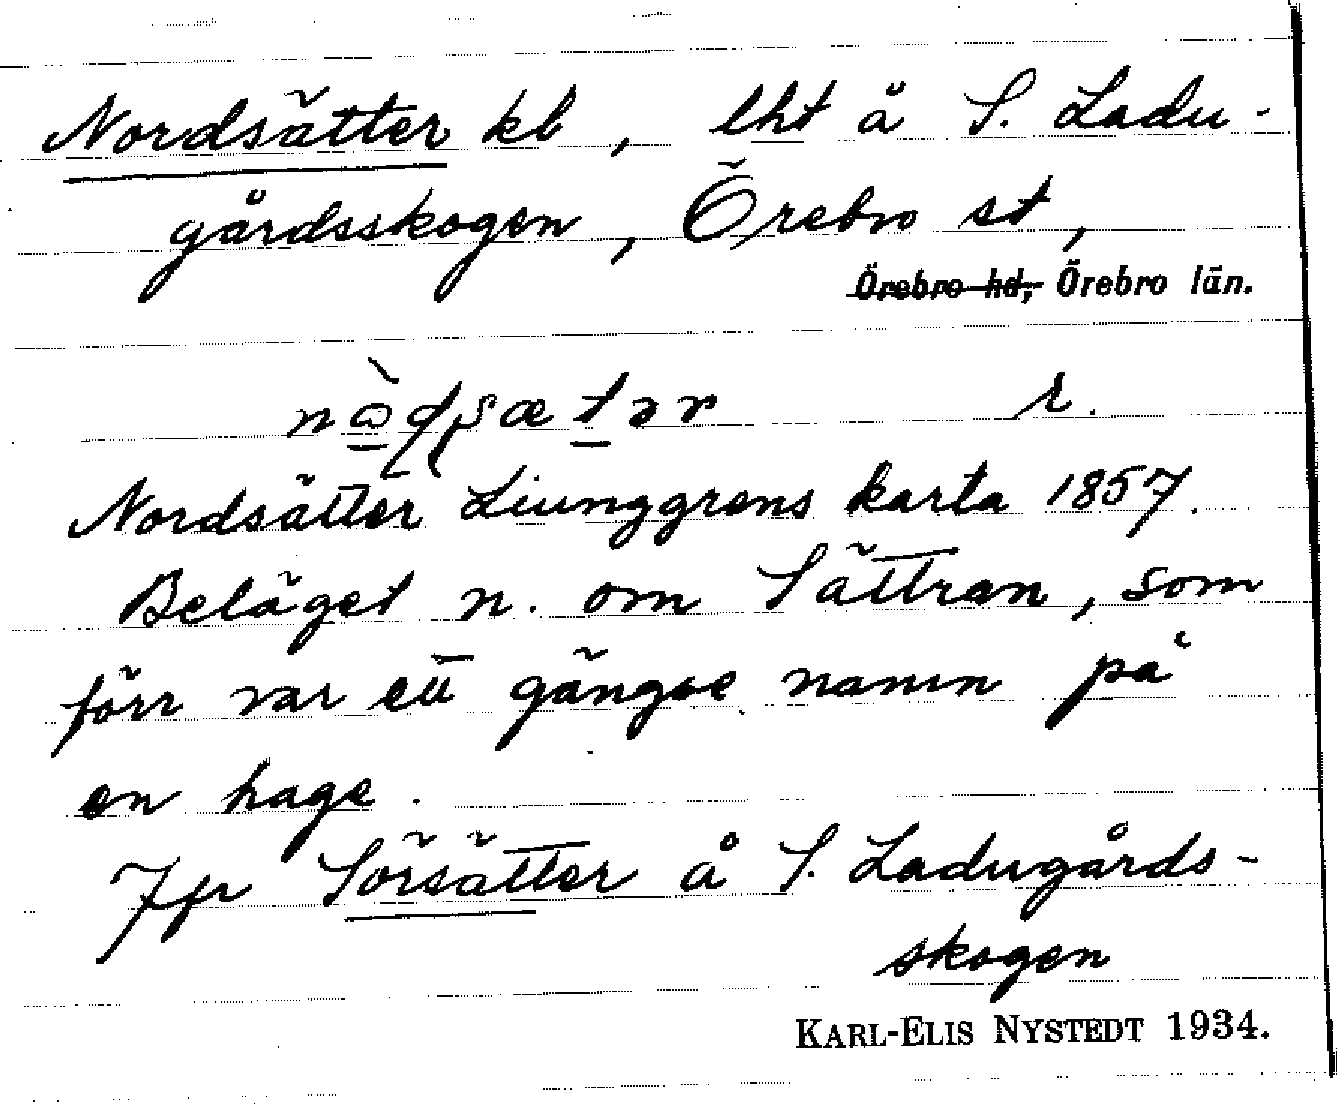 Nordsätter kb, lht å S. Ladu-
gårdsskogen, Örebro st,
Örebro hd, Örebro län.
r.
Nordsätter Liunggrens karta 1857.
Beläget n. om Sättran, som
förr var ett gängse namn på
en hage.
Jfr Sörsätter å S. Ladugårds-
skogen
KARL-ELIS NYSTEDT 1934.